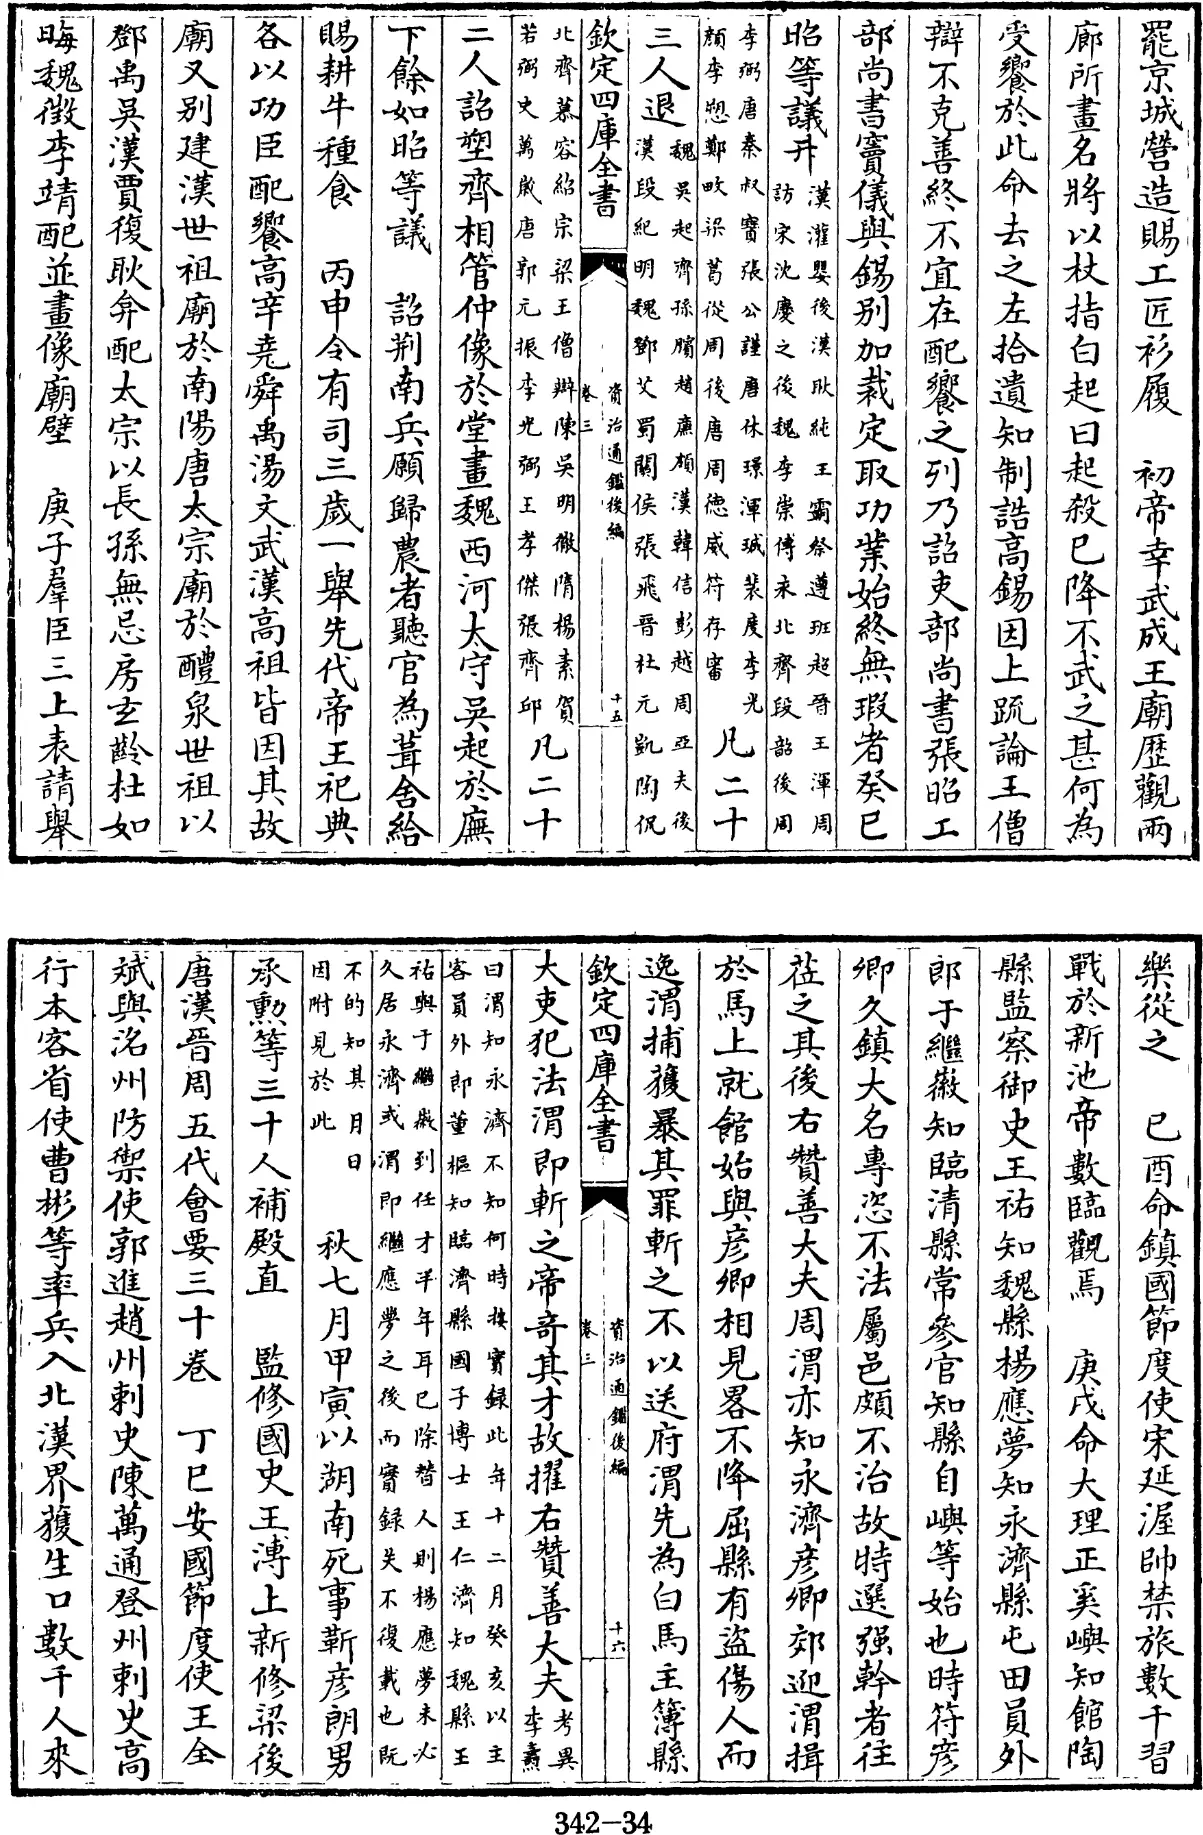 罷京城營造賜工匠衫履　初帝幸武成王廟歴觀兩
廊所畫名將以杖指白起曰起殺已降不武之甚何為
受饗於此命去之左拾遺知制誥高錫因上䟽論王僧
辯不克善終不宜在配饗之列乃詔吏部尚書張昭工
部尚書竇儀與錫别加裁定取功業始終無瑕者癸巳
昭等議升漢灌嬰後漢耿純王霸祭遵班超晉王渾周
訪宋沈慶之後魏李崇傅永北齊段韶後周
李弼唐秦叔寶張公謹唐休璟渾瑊裴度李光
顔李愬鄭畋梁葛從周後唐周德威符存審凡二十
三人退魏吳起齊孫臏趙亷頗漢韓信彭越周亞夫後
漢段紀明魏鄧艾蜀關侯張飛晉杜元凱陶侃
欽定四庫全書
資治通鑑後編
卷三
十五
北齊慕容紹宗梁王僧辯陳吳明徹隋楊素賀
若弼史萬歲唐郭元振李光弼王孝傑張齊邱凡二十
二人詔塑齊相管仲像於堂畫魏西河太守吳起於廡
下餘如昭等議　詔荆南兵願歸農者聽官為葺舍給
賜耕牛種食　丙申令有司三歲一舉先代帝王祀典
各以功臣配饗高辛堯舜禹湯文武漢高祖皆因其故
廟又别建漢世祖廟於南陽唐太宗廟於醴泉世祖以
鄧禹吳漢賈復耿弇配太宗以長孫無忌房玄齡杜如
晦魏徵李靖配並畫像廟壁　庚子羣臣三上表請舉
樂從之　己酉命鎮國節度使宋延渥帥禁旅數千習
戰於新池帝數臨觀焉　庚戌命大理正奚嶼知館陶
縣監察御史王祐知魏縣楊應夢知永濟縣屯田員外
郎于繼徽知臨清縣常參官知縣自嶼等始也時符彦
卿久鎮大名專恣不法屬邑頗不治故特選强幹者往
莅之其後右贊善大夫周渭亦知永濟彦卿郊迎渭揖
於馬上就館始與彦卿相見畧不降屈縣有盗傷人而
逸渭捕獲暴其罪斬之不以送府渭先為白馬主簿縣
欽定四庫全書
資治通鑑後編
卷三
十六
大吏犯法渭即斬之帝奇其才故擢右贊善大夫考異
李燾
曰渭知永濟不知何時按實録此年十二月癸亥以主
客員外郎董樞知臨濟縣國子博士王仁濟知魏縣王
祐與于繼徽到任才半年耳已除替人則楊應夢未必
久居永濟或渭即繼應夢之後而實録失不復載也既
不的知其月日
因附見於此　秋七月甲寅以湖南死事靳彦朗男
承勲等三十人補殿直　監修國史王溥上新修梁後
唐漢晉周五代會要三十卷　丁巳安國節度使王全
斌與洺州防禦使郭進趙州刺史陳萬通登州刺史高
行本客省使曹彬等率兵入北漢界獲生口數千人來
342-34